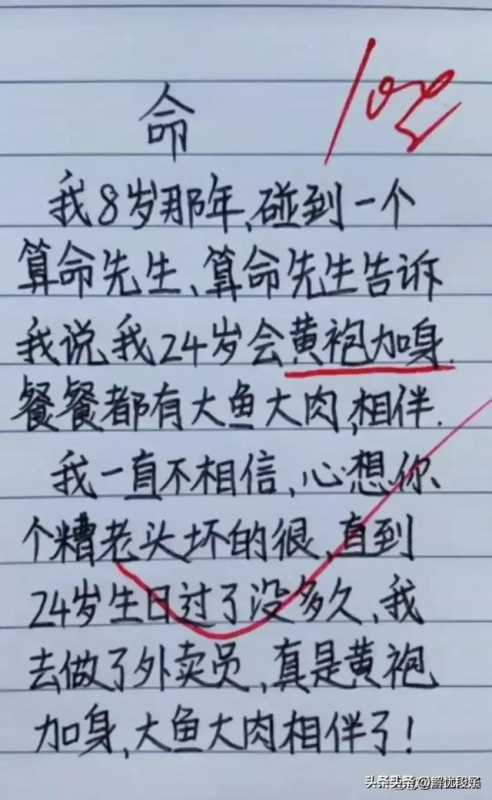 100
命
我8岁那年,碰到一个
算命先生、算命先生告诉
我说我24岁会黄袍加身.
餐餐都有大鱼大肉,相伴.
我一直不相信,心想你
个糟老头坏的很,直到
24岁生日过了没多久、我
去做了外卖员,真是黄袍
加身,大鱼大肉相伴了!
头条头条@解忧段子